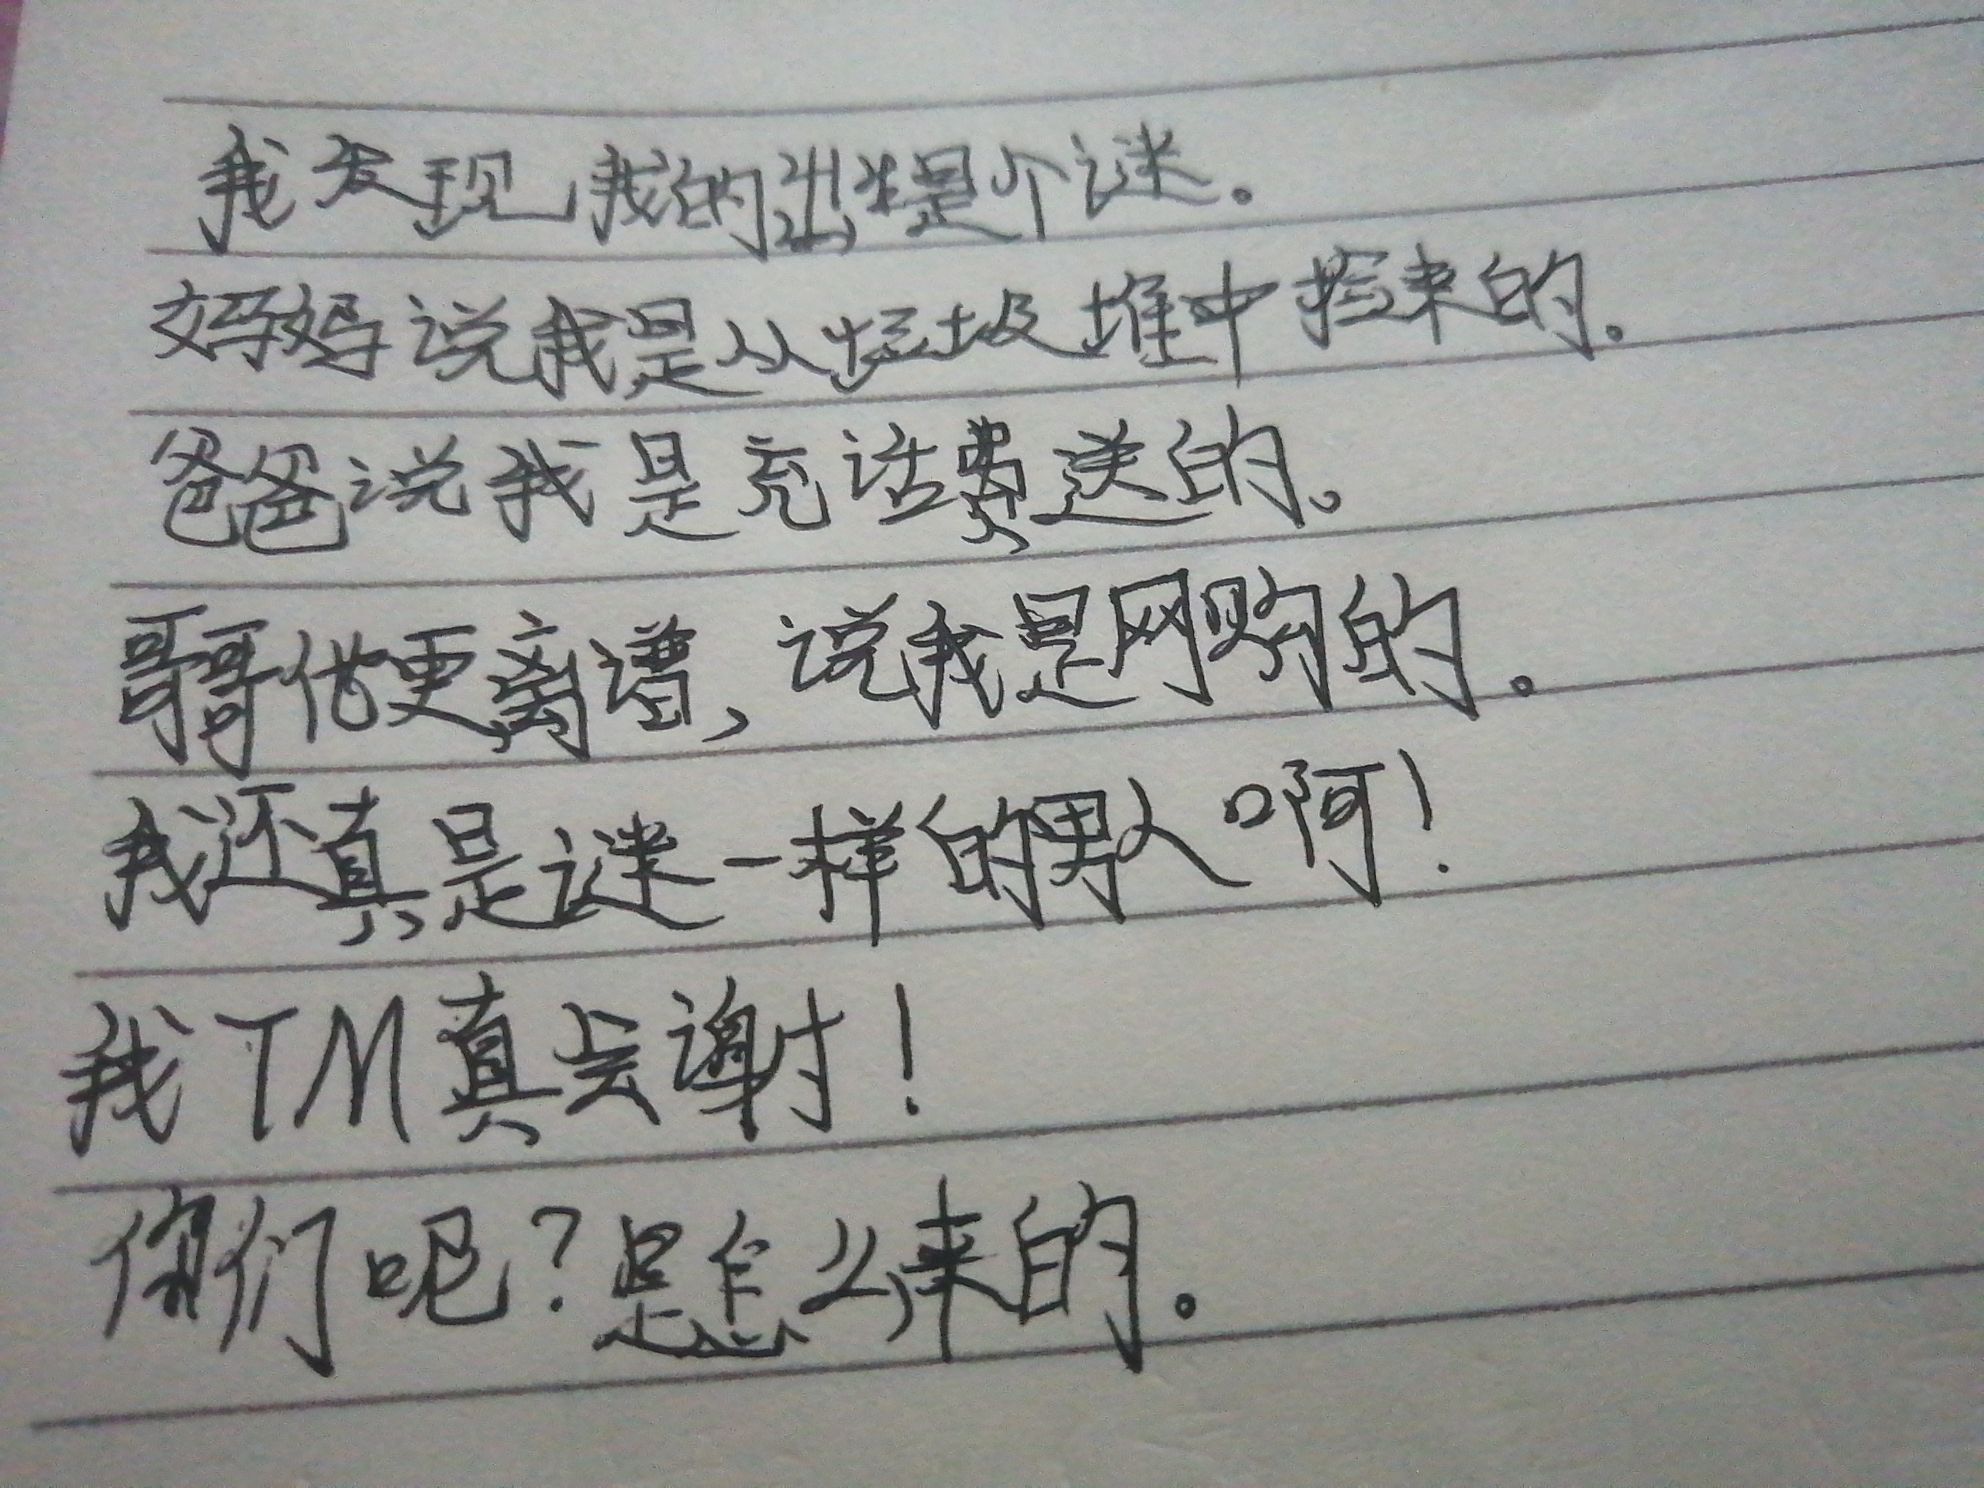 我发现我的出生是个谜。
妈妈说我是从垃圾堆中捡来的。
爸爸说我是充话费送的。
哥哥他更离谱，说我是网购的。
我还真是谜一样的男人啊！
我TM真会谢！
你们吧？是怎么来的。